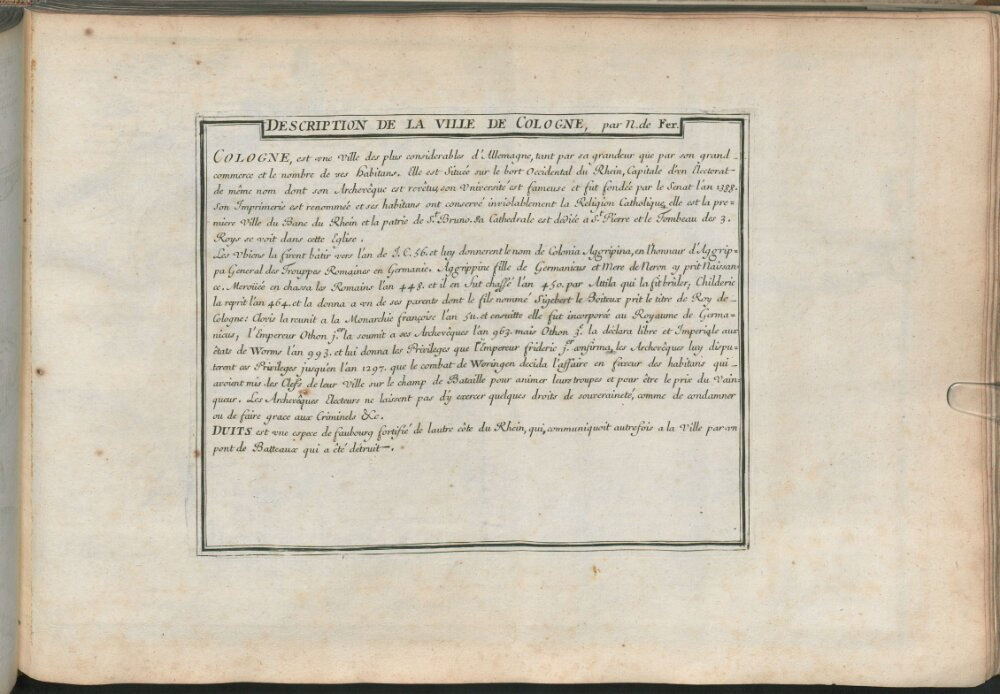 DESCRIPTION DE LA VILLE DE COLOGNE, par N. de Fer.
COLOGNE, est vne Ville des plus considerables d'Allemagne, tant par sa grandeur que par son grand
commerce et le nombre de ses Habitans. Elle est Située sur le bort Occidental du Rhein, Capitale d'vn Electorat
de même nom dont son Archevêque est revêtu, son Vniversité est fameuse et fut fondée par le Senat l'an 1388.
son Imprimerie est renommée et ses habitans ont conservé inviolablement la Religion Catholique, elle est la pre-
miere Ville du Banc du Rhein et la patrie de St. Bruno. Sa Cathedrale est dediée a St. Pierre et le Tombeau des 3.
Roys se voit dans cette Eglise.
Les Vbiens la firent bâtir vers l'an de J.C. 56. et luy donnerent le nom de Colonia Aggripina, en l'honneur d'Aggrip-
pa General des Trouppes Romaines en Germanie. Aggrippine fille de Germanicus et Mere de Neron y prit Naissan-
ce. Meroüée en chassa les Romains l'an 448. et il en fut chassé l'an 450. par Attila qui la fit brûler; Childeric
la reprit l'an 464. et la donna a vn de ses parents dont le fils nommé Sigebert le Boiteux prit le titre de Roy de
Cologne: Clovis la reunit a la Monarchie françoise l'an 511. et ensuitte elle fut incorporée au Royaume de Germa-
nicus, l'Empereur Othon jer. la soumit a ses Archevêques l'an 963. mais Othon 3e. la declara libre et Imperiale aux
états de Worms l'an 993. et lui donna les Privileges que l'Empereur frideric jer. confirma, les Archevêques luy dispu-
terent ces Privileges jusqu'en l'an 1297. que le combat de Woringen decida l'affaire en faveur des habitans qui
avoient mis les Clefs de leur Ville sur le champ de Bataille pour animer leurs troupes et pour être le prix du Vain-
queur. Les Archevêques Electeurs ne laissent pas d'y exercer quelques droits de souveraineté, comme de condamner
ou de faire grace aux Criminels &c.
DUITS est vne espece de faubourg fortifié de lautre côte du Rhein, qui communiquoit autrefois a la Ville par un
pont de Batteaux qui a été détruit.